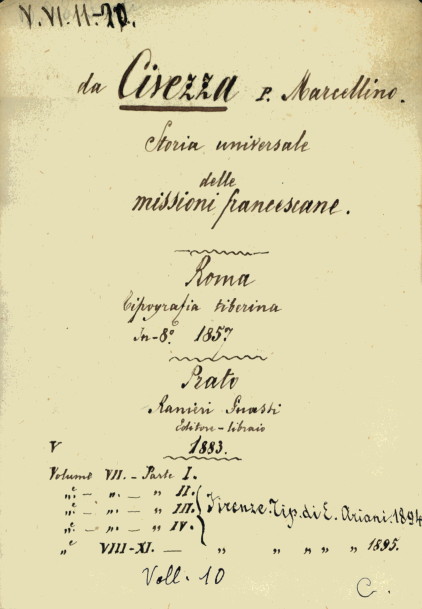 V. VI. 11-20.
da Civezza P. Marcellino.
Storia universale
delle
missioni francescane.
Roma
Tipografia tiberina
In-8.º 1857
Prato
Ranieri Guasti
Editore-libraio
V 1883.
Volume VII. - Parte I.
" - ". - " II.
" - ". - " III. Firenze. Tip. di E. Ariani. 1894
" - ". - " IV.
" VIII-XI. — " " " " 1895.
Voll. 10
C.